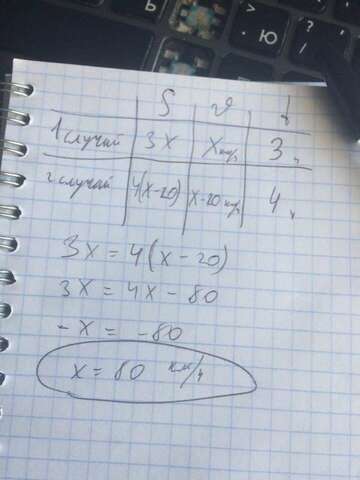 S v t
1 случай 3x x км/ч 3 ч
2 случай 4(x-20) x-20 км/ч 4 ч
3x = 4(x-20)
3x = 4x - 80
-x = -80
x = 80 км/ч
? .
Ю